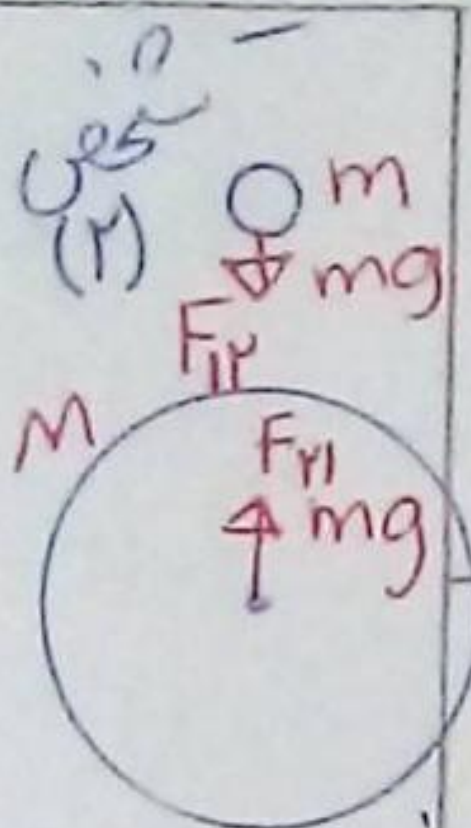 (۲)
m
mg
F۱۲
M
F۲۱
mg